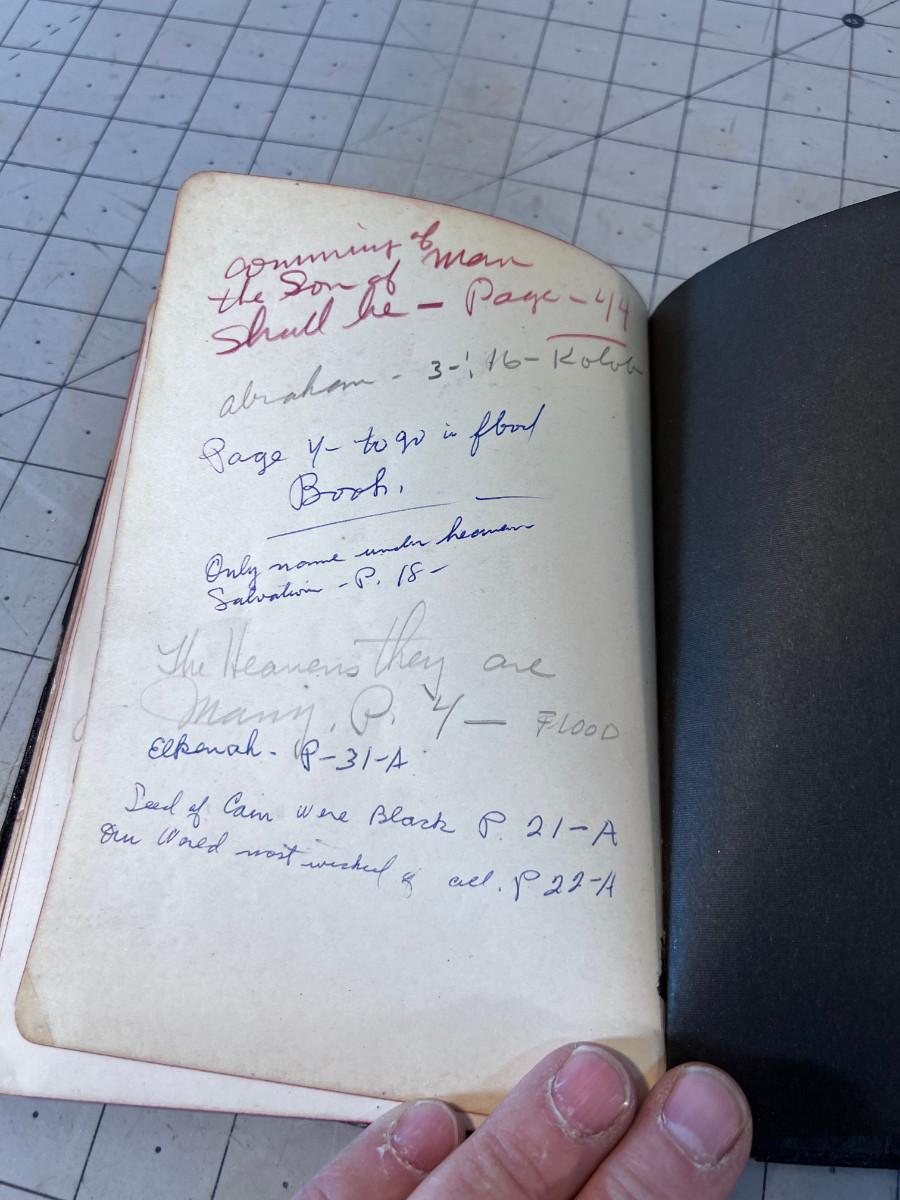 comming of
the Son of Man
Shall be - Page - 44
Abraham - 3-: 16 - Kolob
Page 4 - to go in flood
Book.
Only name under heaven
Salvation - P. 18 -
The Heavens they are
Many, P. 4 — FLOOD
Elkenah - P-31-A
Seed of Cain were Black P. 21-A
Our World most wicked of all. P 22-A